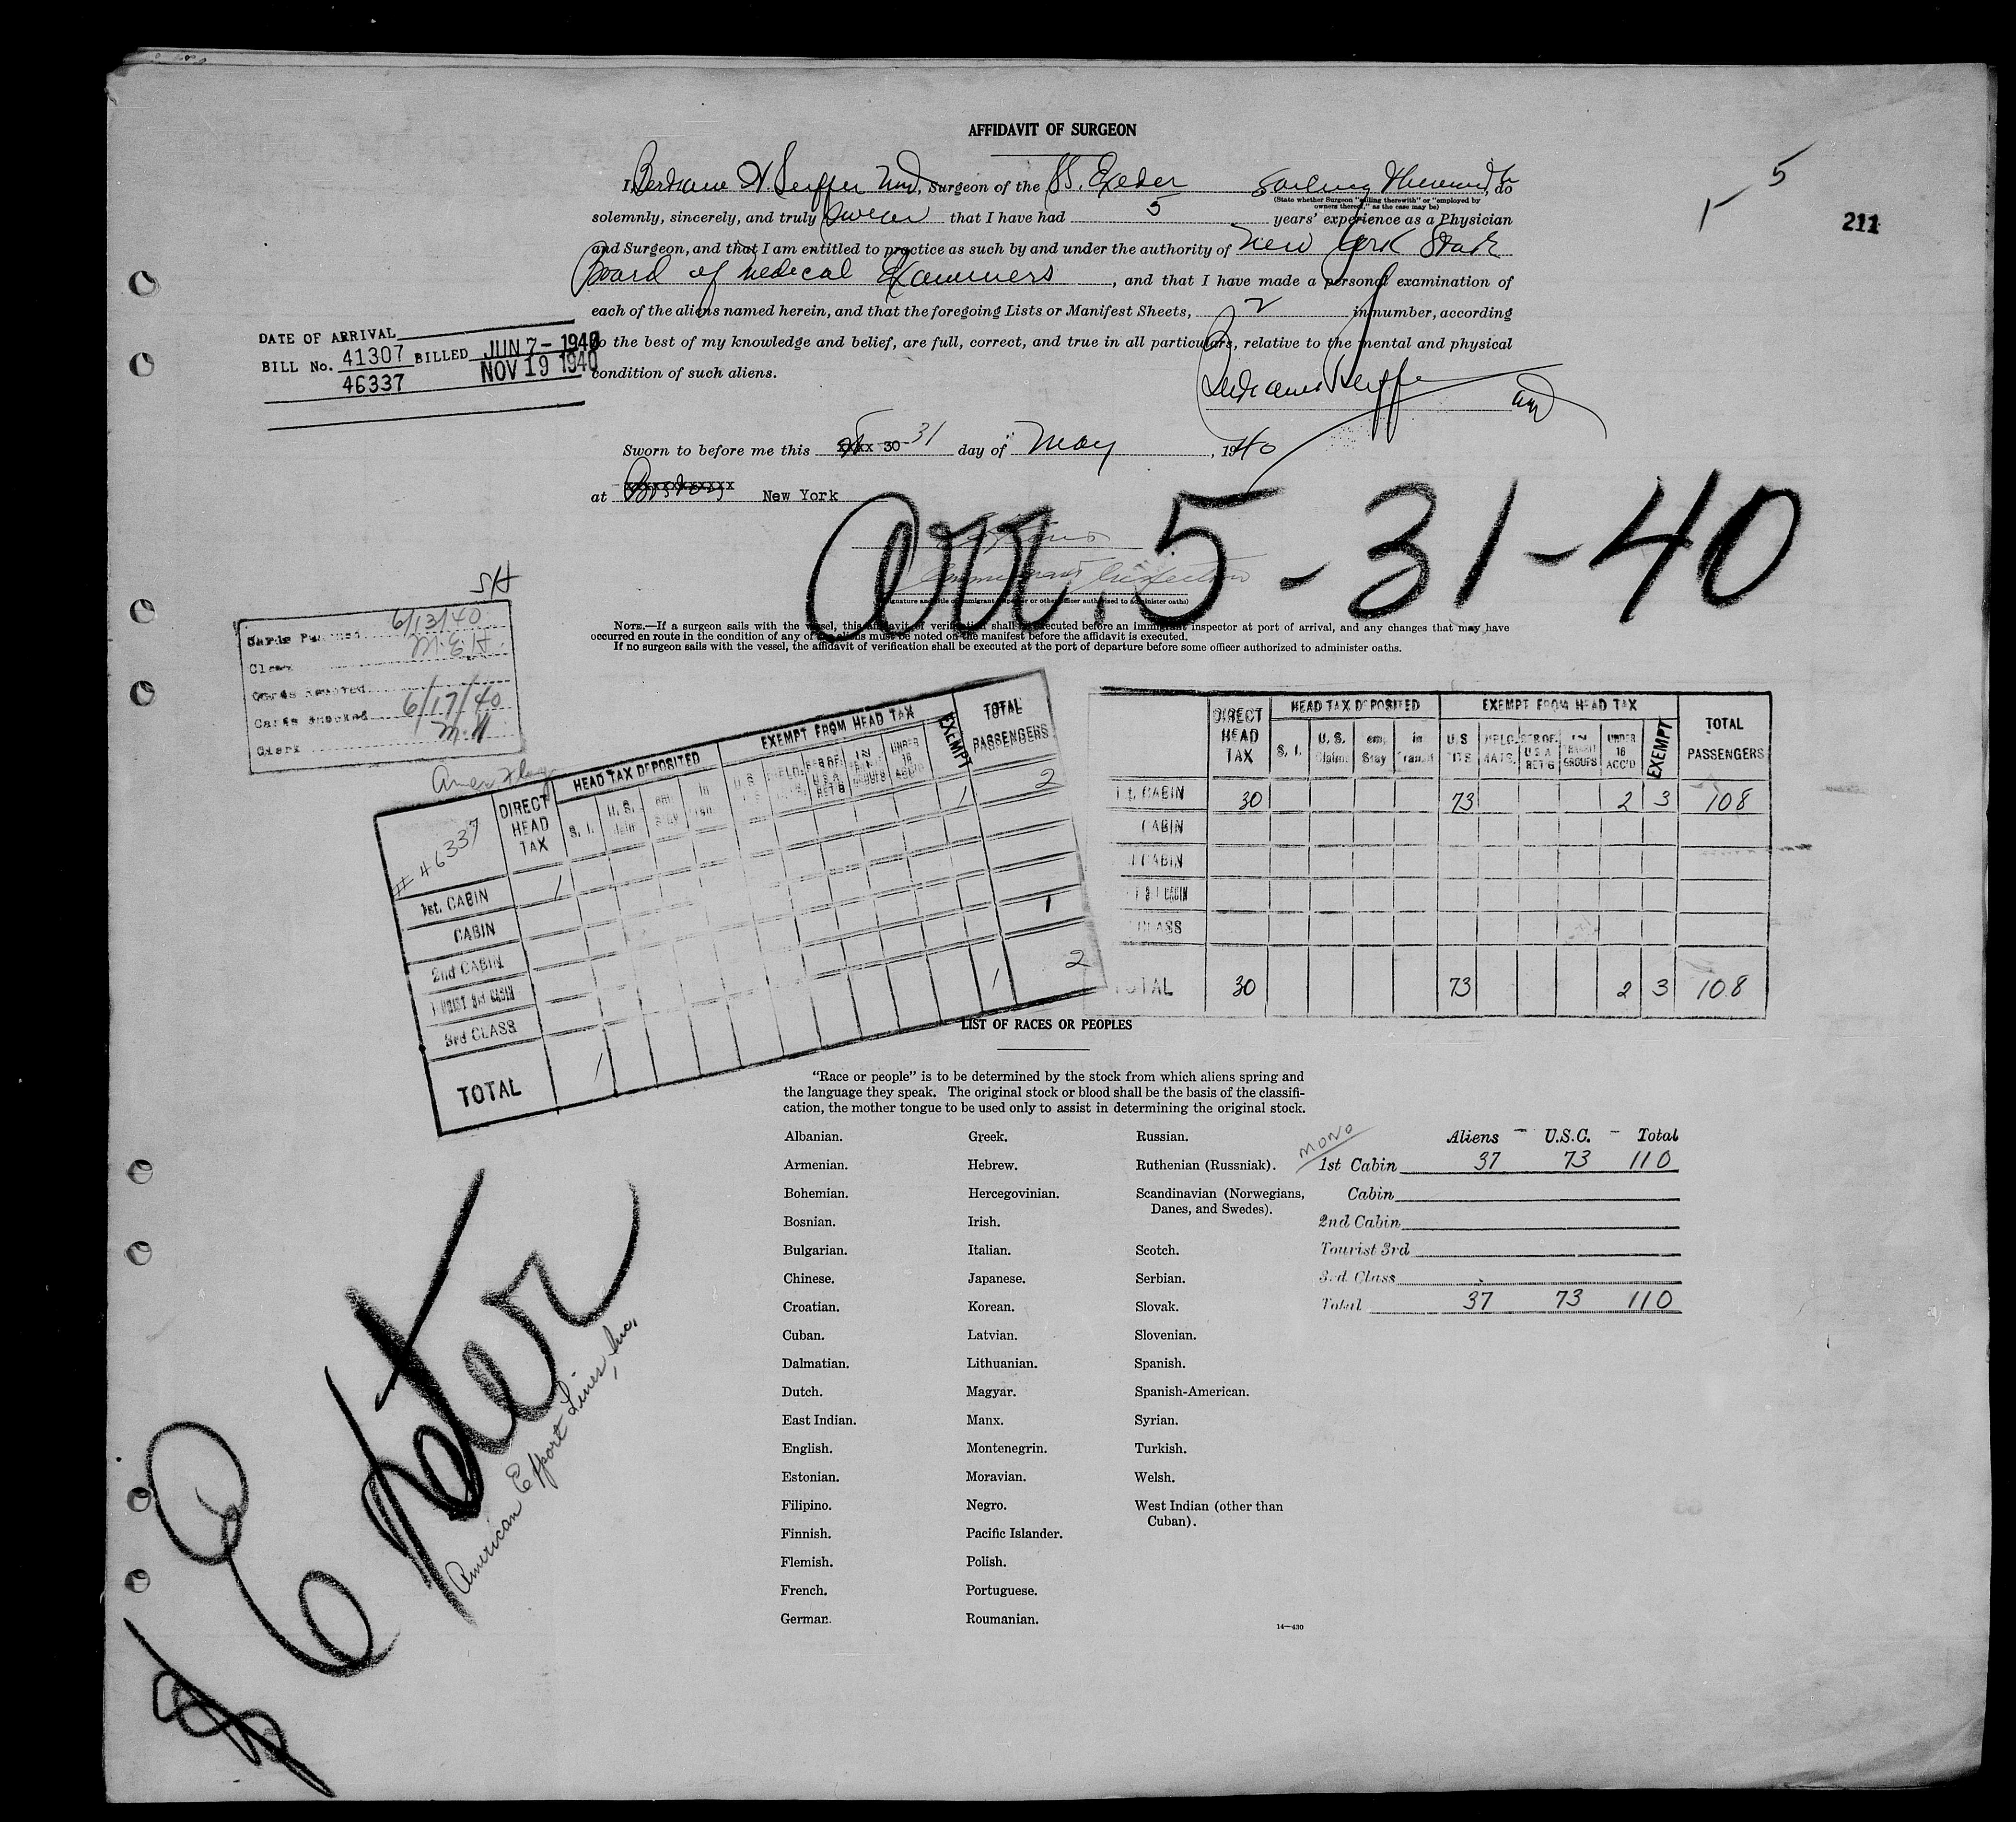 AFFIDAVIT OF SURGEON
I, Seiffer MD, Surgeon of the SS. Exeter Sailing Therewith, do
(State whether Surgeon "sailing therewith" or "employed by
owners thereof," as the case may be)
solemnly, sincerely, and truly swear that I have had 5 years' experience as a Physician
and Surgeon, and that I am entitled to practice as such by and under the authority of New York State
Board of Medical Examiners, and that I have made a personal examination of
each of the aliens named herein, and that the foregoing Lists or Manifest Sheets, 2 in number, according
to the best of my knowledge and belief, are full, correct, and true in all particulars, relative to the mental and physical
condition of such aliens.
5
1
211
DATE OF ARRIVAL
BILL No. 41307 BILLED JUN 7- 1940
46337 NOV 19 1940
Seiffer MD
Sworn to before me this 30 31 day of May, 1940
at Boston New York
Arr. 5-31-40
Immigrant Inspector
(Signature and title of immigrant inspector or other officer authorized to administer oaths)
NOTE.—If a surgeon sails with the vessel, this affidavit of verification shall be executed before an immigrant inspector at port of arrival, and any changes that may have
occurred en route in the condition of any of the aliens must be noted on the manifest before the affidavit is executed.
If no surgeon sails with the vessel, the affidavit of verification shall be executed at the port of departure before some officer authorized to administer oaths.
SH
Cards Punched 6/13/40
Clerk M.E.H.
Cards
Cards Checked 6/17/40
Clerk M.H
#46337
DIRECT HEAD TAX
HEAD TAX DEPOSITED
EXEMPT FROM HEAD TAX
EXEMPT
TOTAL PASSENGERS
1st. CABIN 1 1 2
CABIN
2nd CABIN
TOURIST 3rd CABIN
3rd CLASS 1
TOTAL 1 1 2
DIRECT HEAD TAX
HEAD TAX DEPOSITED
S. I. U. S. Claim. em. Stay in Transit
EXEMPT FROM HEAD TAX
UNDER 16 ACC'D
EXEMPT
TOTAL PASSENGERS
CABIN 30 73 2 3 108
CABIN
CABIN
CABIN
CLASS
TOTAL 30 73 2 3 108
LIST OF RACES OR PEOPLES
"Race or people" is to be determined by the stock from which aliens spring and
the language they speak. The original stock or blood shall be the basis of the classifi-
cation, the mother tongue to be used only to assist in determining the original stock.
Albanian.
Armenian.
Bohemian.
Bosnian.
Bulgarian.
Chinese.
Croatian.
Cuban.
Dalmatian.
Dutch.
East Indian.
English.
Estonian.
Filipino.
Finnish.
Flemish.
French.
German.
Greek.
Hebrew.
Hercegovinian.
Irish.
Italian.
Japanese.
Korean.
Latvian.
Lithuanian.
Magyar.
Manx.
Montenegrin.
Moravian.
Negro.
Pacific Islander.
Polish.
Portuguese.
Roumanian.
Russian.
Ruthenian (Russniak).
Scandinavian (Norwegians,
Danes, and Swedes).
Scotch.
Serbian.
Slovak.
Slovenian.
Spanish.
Spanish-American.
Syrian.
Turkish.
Welsh.
West Indian (other than
Cuban).
mono
Aliens - U.S.C. - Total
1st Cabin 37 73 110
Cabin
2nd Cabin
Tourist 3rd
3rd Class
Total 37 73 110
Exeter
American Export Lines, Inc.
14—430